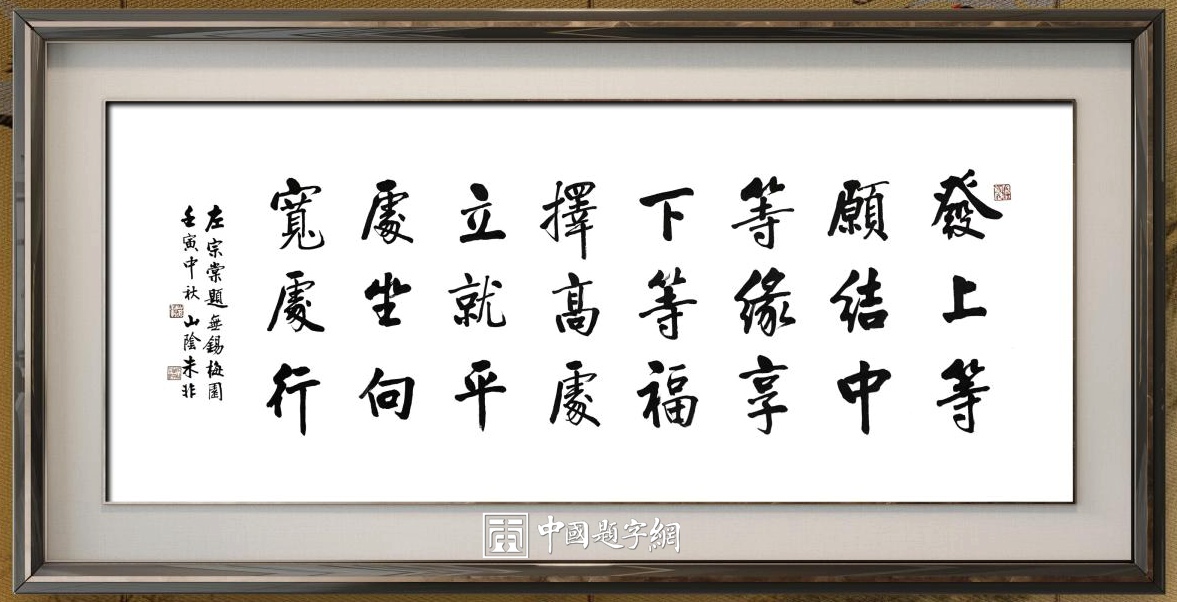 發上等
願結中
等緣享
下等福
擇高處
立就平
處坐向
寬處行
左宗棠題無錫梅園
壬寅中秋 山陰未非
中國題字網